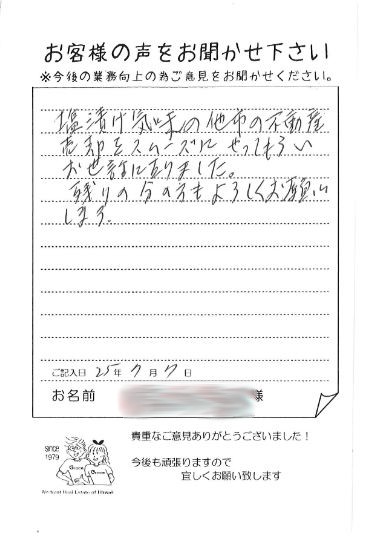 お客様の声をお聞かせ下さい
※今後の業務向上の為ご意見をお聞かせください。
塩漬け気味の他市の不動産
売却をスムーズにやってもらい
お世話になりました。
残りの分の方もよろしくお願い
します。
ご記入日 25年 7月 7日
お名前 様
貴重なご意見ありがとうございました！
since
1979
今後も頑張りますので
宜しくお願い致します